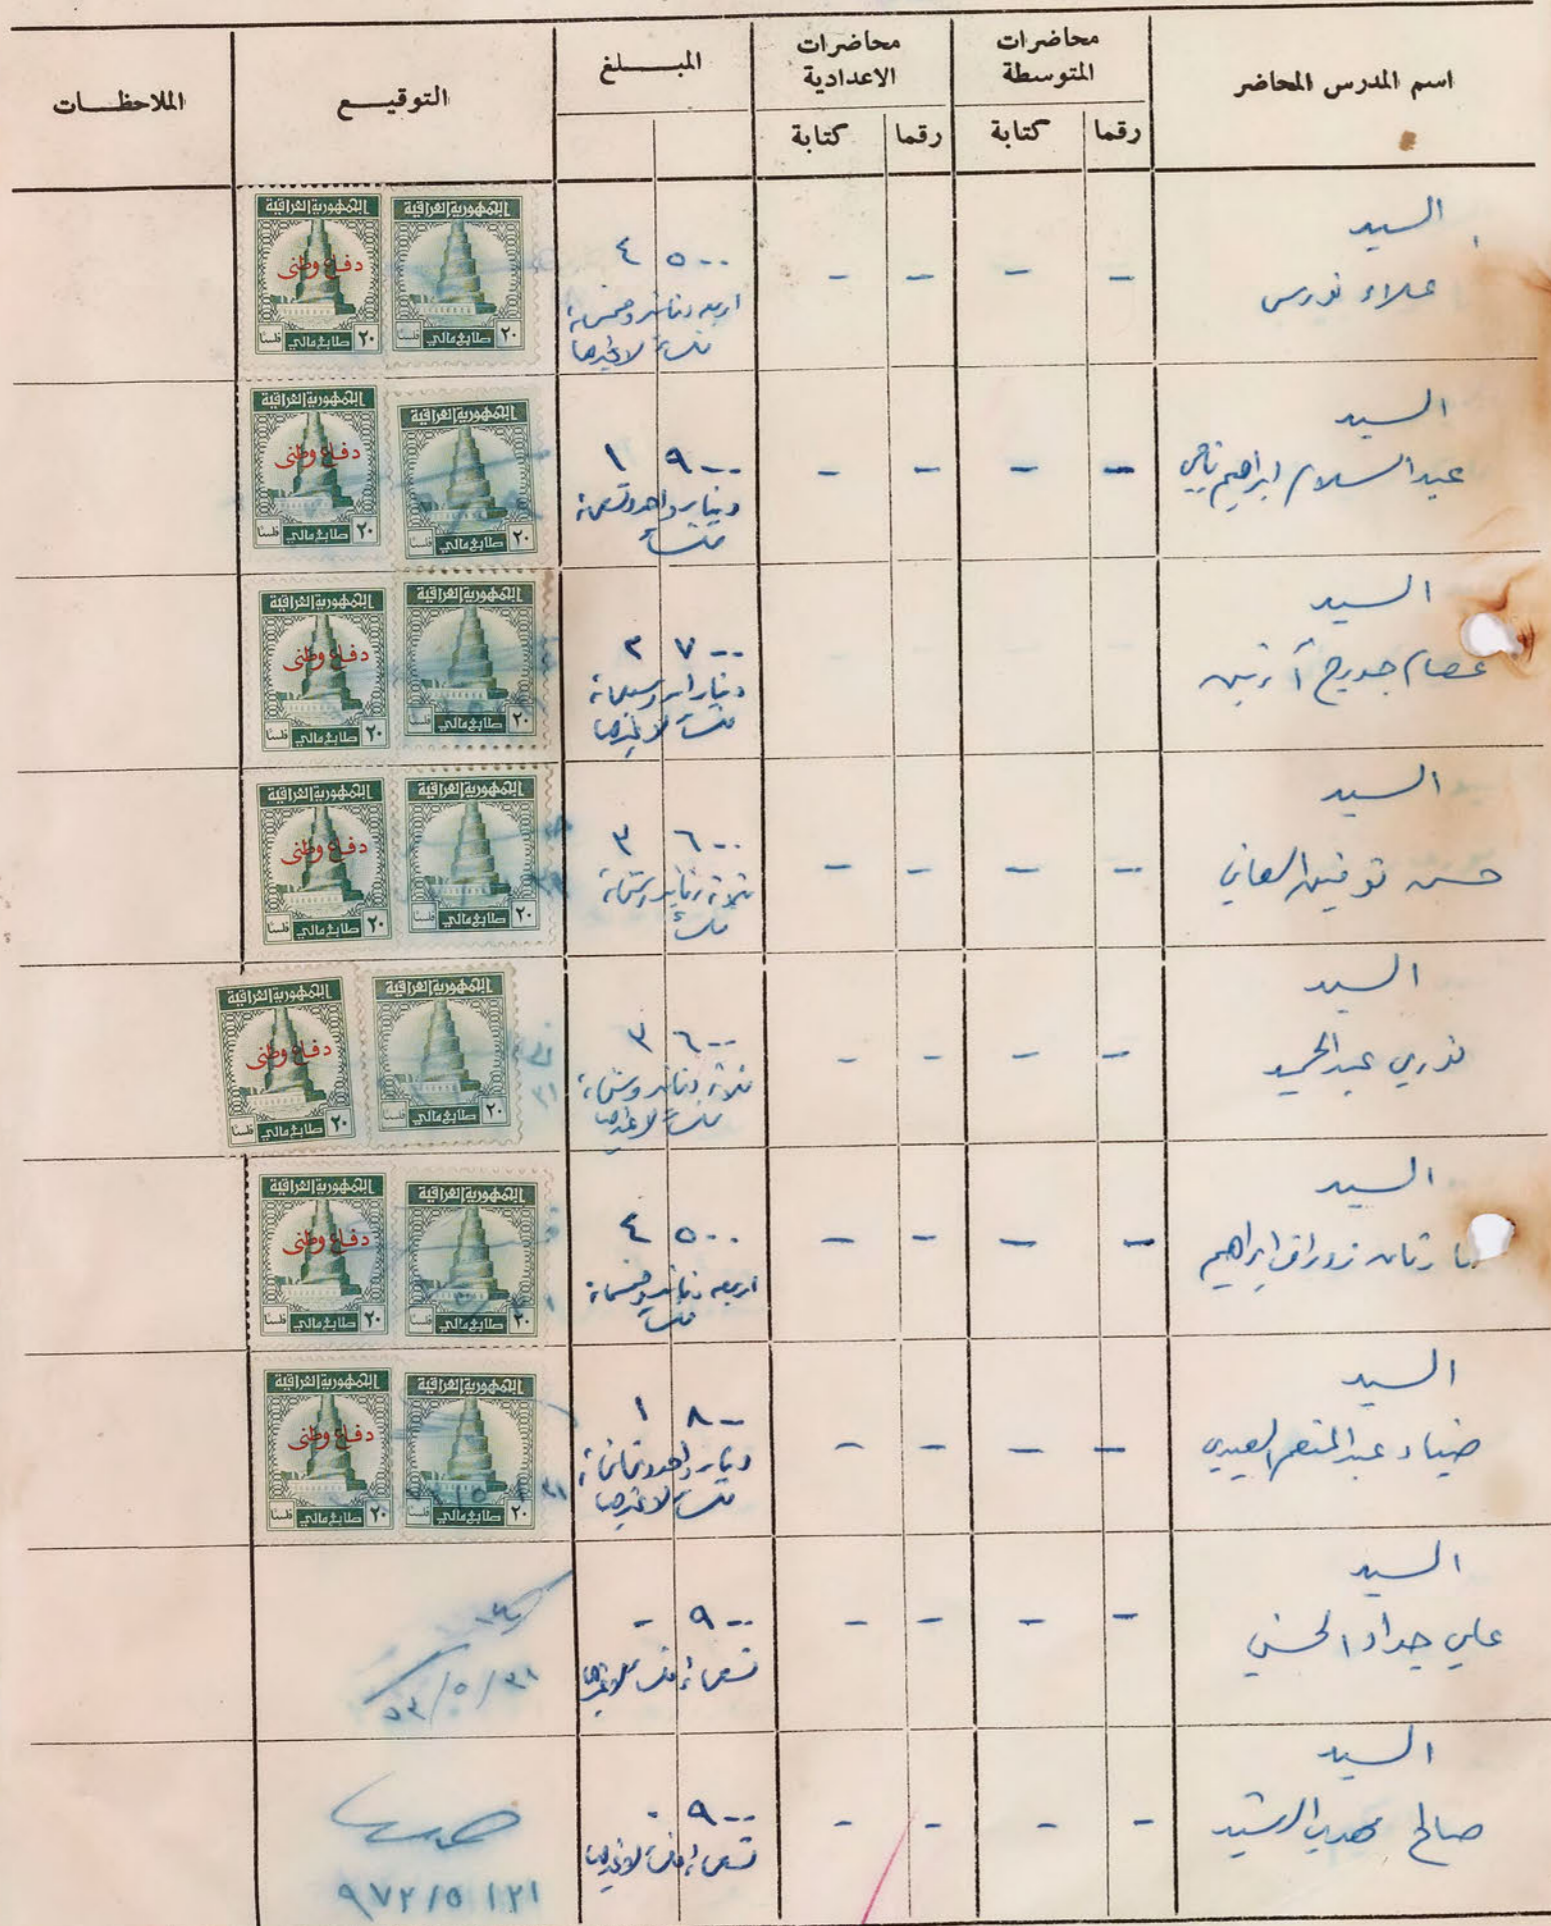 اسم المدرس المحاضر
محاضرات المتوسطة
رقما
كتابة
محاضرات الاعدادية
رقما
كتابة
المبـــلغ
التوقيـــع
الملاحظـــات
السيد
علاء نورس
- - - -
٥٠٠ ٤
اربعة دنانير وخمسمائة
فلساً لا غيرها
الجمهورية العراقية
٢٠ طابع مالي فلسا
الجمهورية العراقية
دفاع وطني
٢٠ طابع مالي فلسا
السيد
عبد السلام ابراهيم ناجي
- - - -
٩٠٠ ١
دينار واحد وتسعمائة
فلساً
الجمهورية العراقية
٢٠ طابع مالي فلسا
الجمهورية العراقية
دفاع وطني
٢٠ طابع مالي فلسا
السيد
عصام جورج
٧٠٠ ٢
ديناران وسبعمائة
فلساً لا غيرها
الجمهورية العراقية
٢٠ طابع مالي فلسا
الجمهورية العراقية
دفاع وطني
٢٠ طابع مالي فلسا
السيد
حسن توفيق العاني
- - - -
٦٠٠ ٣
ثلاثة دنانير وستمائة
فلساً
الجمهورية العراقية
٢٠ طابع مالي فلسا
الجمهورية العراقية
دفاع وطني
٢٠ طابع مالي فلسا
السيد
نوري عبد الحميد
- - - -
٦٠٠ ٣
ثلاثة دنانير وستمائة
فلساً لا غيرها
الجمهورية العراقية
٢٠ طابع مالي فلسا
الجمهورية العراقية
دفاع وطني
٢٠ طابع مالي فلسا
السيد
ابراهيم
- - - -
٥٠٠ ٤
اربعة دنانير وخمسمائة
فلساً
الجمهورية العراقية
٢٠ طابع مالي فلسا
الجمهورية العراقية
دفاع وطني
٢٠ طابع مالي فلسا
السيد
ضياء عبد المنعم العبيدي
- - - -
٨٠٠ ١
دينار واحد وثمانمائة
فلساً لا غيرها
الجمهورية العراقية
٢٠ طابع مالي فلسا
الجمهورية العراقية
دفاع وطني
٢٠ طابع مالي فلسا
السيد
علي جواد الحسني
- - - -
٩٠٠ -
تسعمائة فلس لا غيرها
السيد
صالح مهدي الرشيد
- - - -
٩٠٠ ٠
تسعمائة فلساً لا غيرها
٩٧٢/٥/٢١